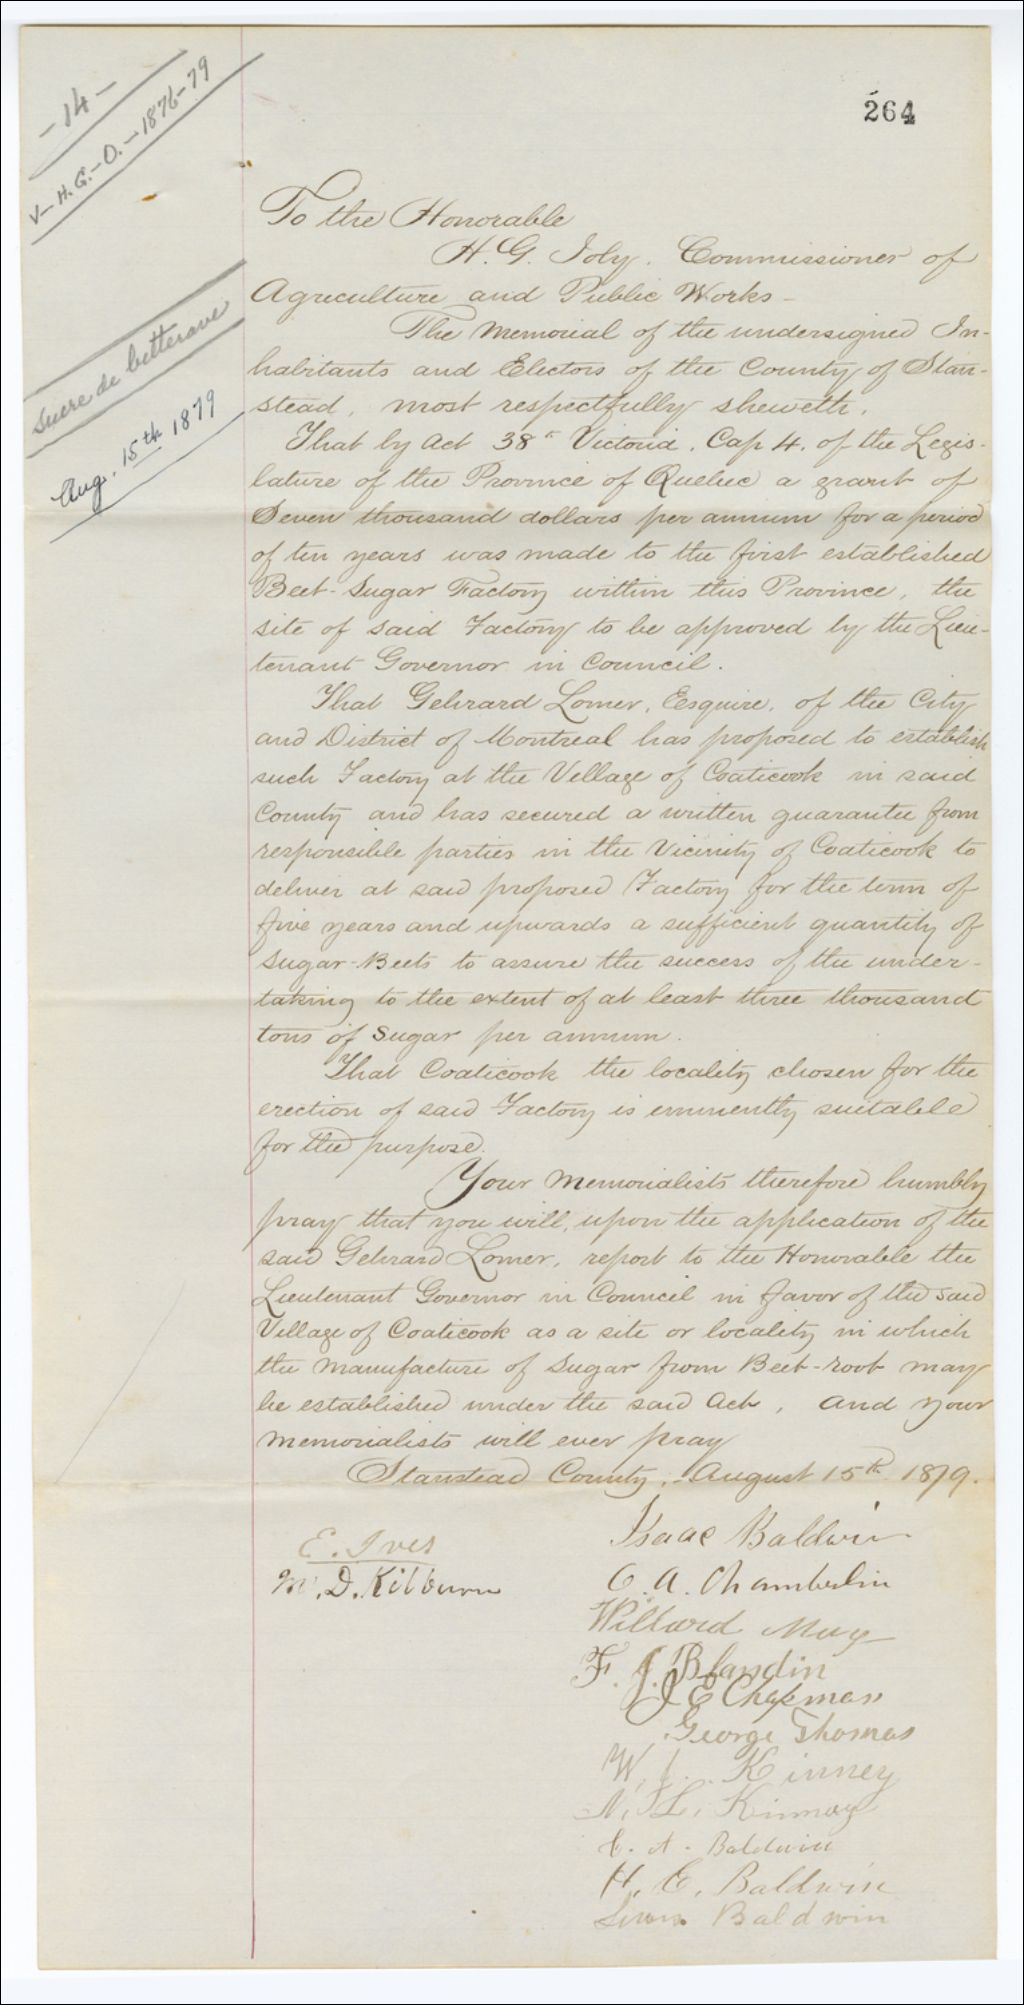 264
- 14 -
V - H. G. - O. - 1876-79
Sucre de betterave
Aug. 15th 1879
To the Honorable
H. G. Joly. Commissioner of
Agreculture and Public Works -
The Memorial of the undersigned In-
habitants and Electors of the County of Stan-
stead, most respectfully sheweth.
That by Act 38th Victoria, Cap 4. of the Legis-
lature of the Province of Quebec a grant of
Seven thousand dollars per annum for a period
of ten years was made to the first established
Beet-Sugar Factory within this Province, the
site of said Factory to be approved by the Lieu-
tenant Governor in Council.
That Gehrard Lomer, Esquire, of the City
and District of Montreal has proposed to establish
such Factory at the Village of Coaticook in said
County and has secured a written guarantee from
responsible parties in the Vicinity of Coaticook to
deliver at said proposed Factory for the term of
five years and upwards a sufficient quantity of
Sugar-Beets to assure the success of the under-
taking to the extent of at least three thousand
tons of Sugar per annum.
That Coaticook the locality chosen for the
erection of said Factory is eminently suitable
for the purpose.
Your Memorialists therefore humbly
pray that you will, upon the application of the
said Gehrard Lomer, report to the Honorable the
Lieutenant Governor in Council in favor of the said
Village of Coaticook as a site or locality in which
the manufacture of Sugar from Beet-root may
be established under the said Act, and your
Memorialists will ever pray
Stanstead County, August 15th 1879.
E. Ives
M. D. Kilburn
Isaac Baldwin
C. A. Chamberlin
Willard May
F. J. Blandin
J E Chapman
George Thomas
W. J. Kinney
N. L. Kinney
E. A. Baldwin
H. E. Baldwin
Baldwin